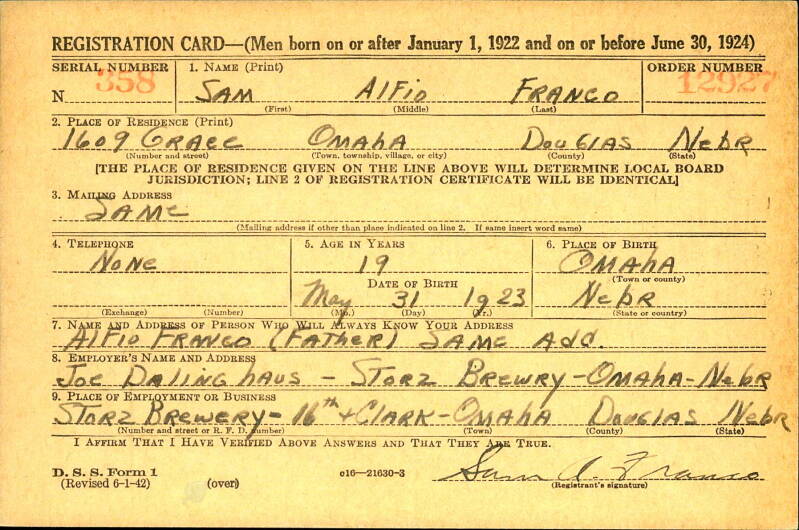 REGISTRATION CARD—(Men born on or after January 1, 1922 and on or before June 30, 1924)
SERIAL NUMBER 1. NAME (Print) ORDER NUMBER
N 358 SAM AlFio FRANCO 12927
(First) (Middle) (Last)
2. PLACE OF RESIDENCE (Print)
1609 GRACE OMAHA DOUGLAS NEBR
(Number and street) (Town, township, village, or city) (County) (State)
[THE PLACE OF RESIDENCE GIVEN ON THE LINE ABOVE WILL DETERMINE LOCAL BOARD
JURISDICTION; LINE 2 OF REGISTRATION CERTIFICATE WILL BE IDENTICAL]
3. MAILING ADDRESS
SAME
(Mailing address if other than place indicated on line 2. If same insert word same)
4. TELEPHONE 5. AGE IN YEARS 6. PLACE OF BIRTH
NONE 19 OMAHA
(Town or county)
DATE OF BIRTH
May 31 1923 NEBR
(Exchange) (Number) (Mo.) (Day) (Yr.) (State or country)
7. NAME AND ADDRESS OF PERSON WHO WILL ALWAYS KNOW YOUR ADDRESS
AlFio FRANCO (FATHER) SAME ADD.
8. EMPLOYER'S NAME AND ADDRESS
JOE DALINGHAUS - STORZ BREWRY - OMAHA - NEBR
9. PLACE OF EMPLOYMENT OR BUSINESS
STORZ BREWERY - 16th + CLARK - OMAHA DOUGLAS NEBR
(Number and street or R. F. D. number) (Town) (County) (State)
I AFFIRM THAT I HAVE VERIFIED ABOVE ANSWERS AND THAT THEY ARE TRUE.
D. S. S. Form 1
(Revised 6-1-42) (over) c16—21630-3 Sam A. Franco
(Registrant's signature)